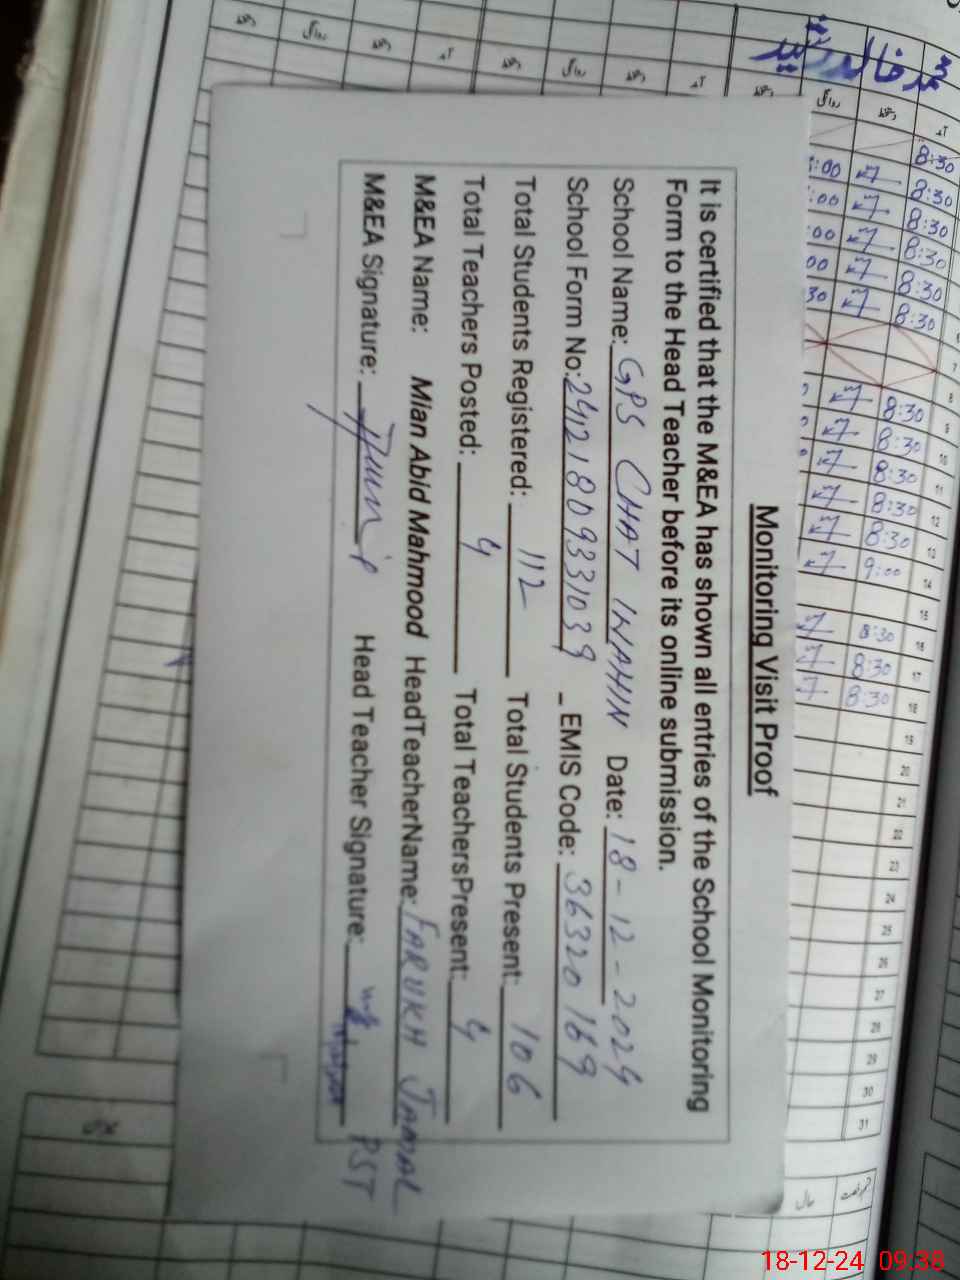 Monitoring Visit Proof
It is certified that the M&EA has shown all entries of the School Monitoring
Form to the Head Teacher before its online submission.
School Name: GPS CHAT WAHIN Date: 18-12-2024
School Form No: 24121809331039 _ EMIS Code: 36320169
Total Students Registered: 112 Total Students Present: 106
Total Teachers Posted: 4 Total TeachersPresent: 4
M&EA Name: Mian Abid Mahmood HeadTeacherName: FARUKH JAMAL
M&EA Signature: Head Teacher Signature: PST
8:30
8:30
8:30
8:30
8:30
8:30
8:30
8:30
8:30
8:30
8:30
9:00
8:30
8:30
8:30
7
8
9
10
11
12
13
14
15
16
17
18
19
20
21
22
23
24
25
26
27
28
29
30
31
حال
18-12-24 09:38